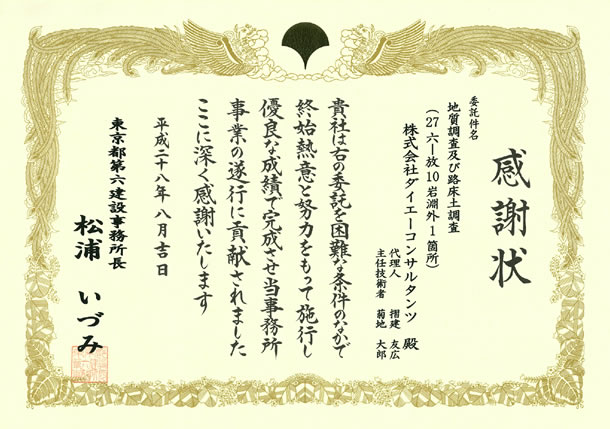 感謝状
委託件名
地質調査及び路床土調査
(27六―放10岩淵外1箇所)
株式会社ダイエーコンサルタンツ 殿
代理人 摺建 友広
主任技術者 菊地 大郎
貴社は右の委託を困難な条件のなかで
終始熱意と努力をもって施行し
優良な成績で完成させ当事務所
事業の遂行に貢献されました
ここに深く感謝いたします
平成二十八年八月吉日
東京都第六建設事務所長
松浦 いづみ